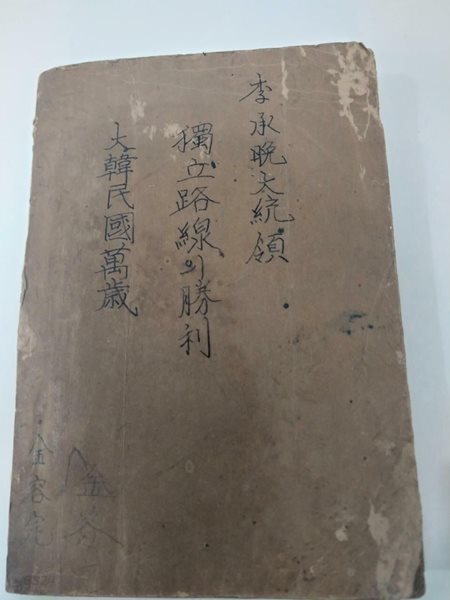 李承晩大統領
獨立路線의勝利
大韓民國萬歲
金容完